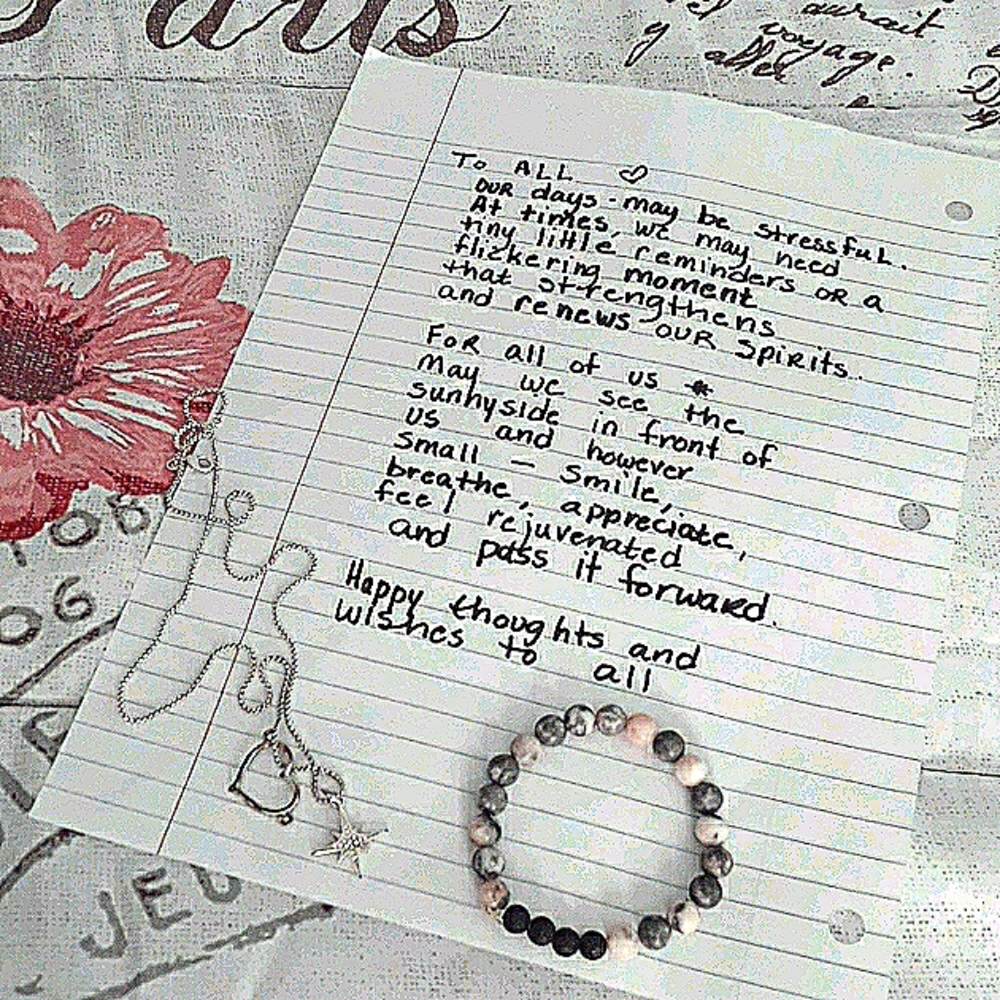 Paris
aurait
voyage.
y aller
To ALL ♡
OUR days - may be stressful.
At times, we may need
tiny little reminders OR a
flickering moment
that strengthens
and renews OUR spirits.
FOR all of us *
may we see the
sunnyside in front of
us and however
small — smile,
breathe, appreciate,
feel rejuvenated
and pass it forward.
Happy thoughts and
wishes to all
06
JEU